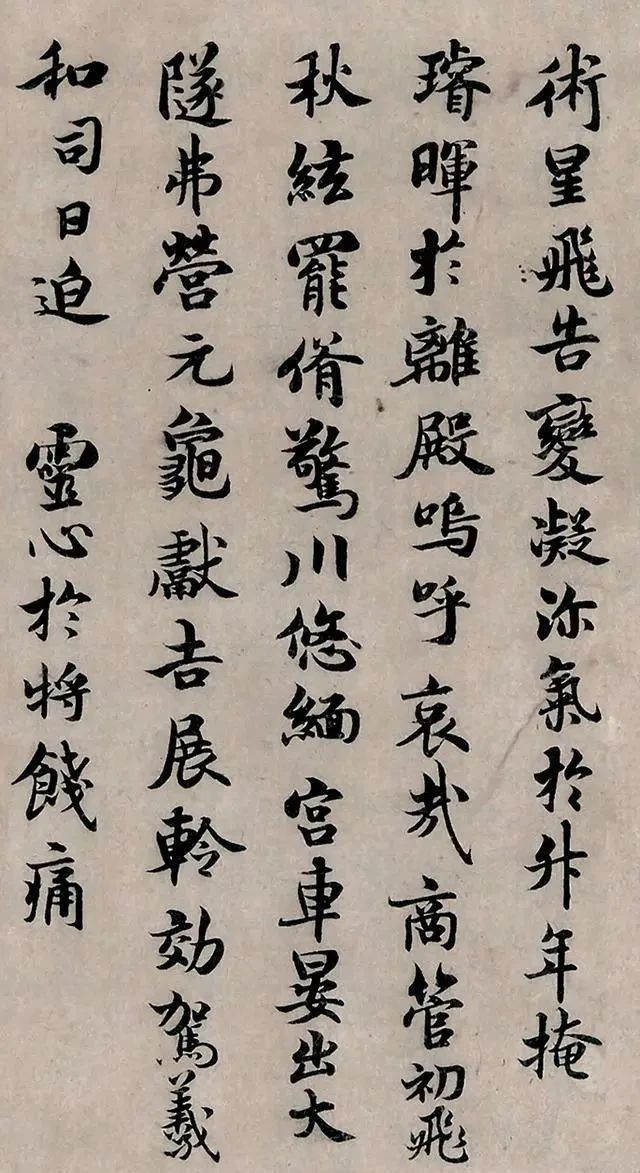 術星飛告變凝沴氣於升年掩
璿暉於離殿嗚呼哀哉商管初飛
秋絃罷脩驚川悠緬宮車晏出大
隧弗營元龜獻吉展軨効駕羲
和司日迫 靈心於將餞痛